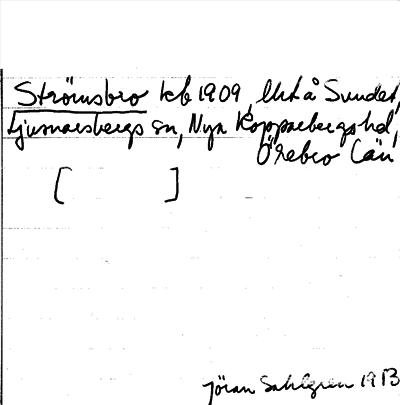 Strömsbro kb 1909, lht å Sundet,
Ljusnarsbergs sn, Nya Kopparbergs hd,
Örebro län
[ ]
Jöran Sahlgren 1913